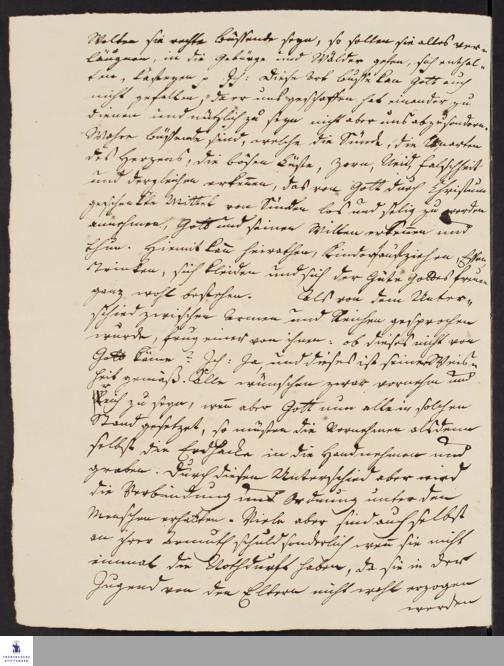 Wollen sie rechte büssende seyn, so sollen sie alles ver-
läugnen, in die Gebürge und Wälder gehen, sich enthal-
ten, casteyen p Ich: Diese Art Busse kan Gott auch
nicht gefallen, da er uns geschaffen hat einander zu
dienen und nützlich zu seyn nicht aber uns abzusondern.
Wahre büssende sind, welche die Sünde, die Unarten
des Herzens, die bösen Lüste, Zorn, Neid, Falschheit
und dergleichen erkennen, das von Gott durch Christum
geschenkte Mittel von Sünden los und selig zu werden
annehmen, Gott und seinen Willen erkennen und
thun. Hiemit kan heirathen, Kinder aufziehen, Essen
trinken, sich kleiden und sich der Güte Gottes freuen
ganz wohl bestehen. Als von dem Unter-
schied zwischen Armen und Reichen gesprochen
wurde, frug einer von ihnen: ob dieses nicht von
Gott käme? Ich: Ja und dieses ist seiner Weis-
heit gemäß. Alle wünschen zwar vornehm und
Reich zu seyn, wen aber Gott nun alle in solchen
Stand gesetzet, so müsten die Vornehmen alsdenn
selbst die Erdhacke in die Hand nehmen und
graben. Durch diesen Unterschied aber wird
die Verbindung und Ordnung unter den
Menschen erhalten. Viele aber sind auch selbst
an ihrer Armuth schuld sonderlich wen sie nicht
einmal die Nothdurft haben, da sie in der
Jugend von den Eltern nicht wohl erzogen
werden
FRANCKESCHE
STIFTUNGEN